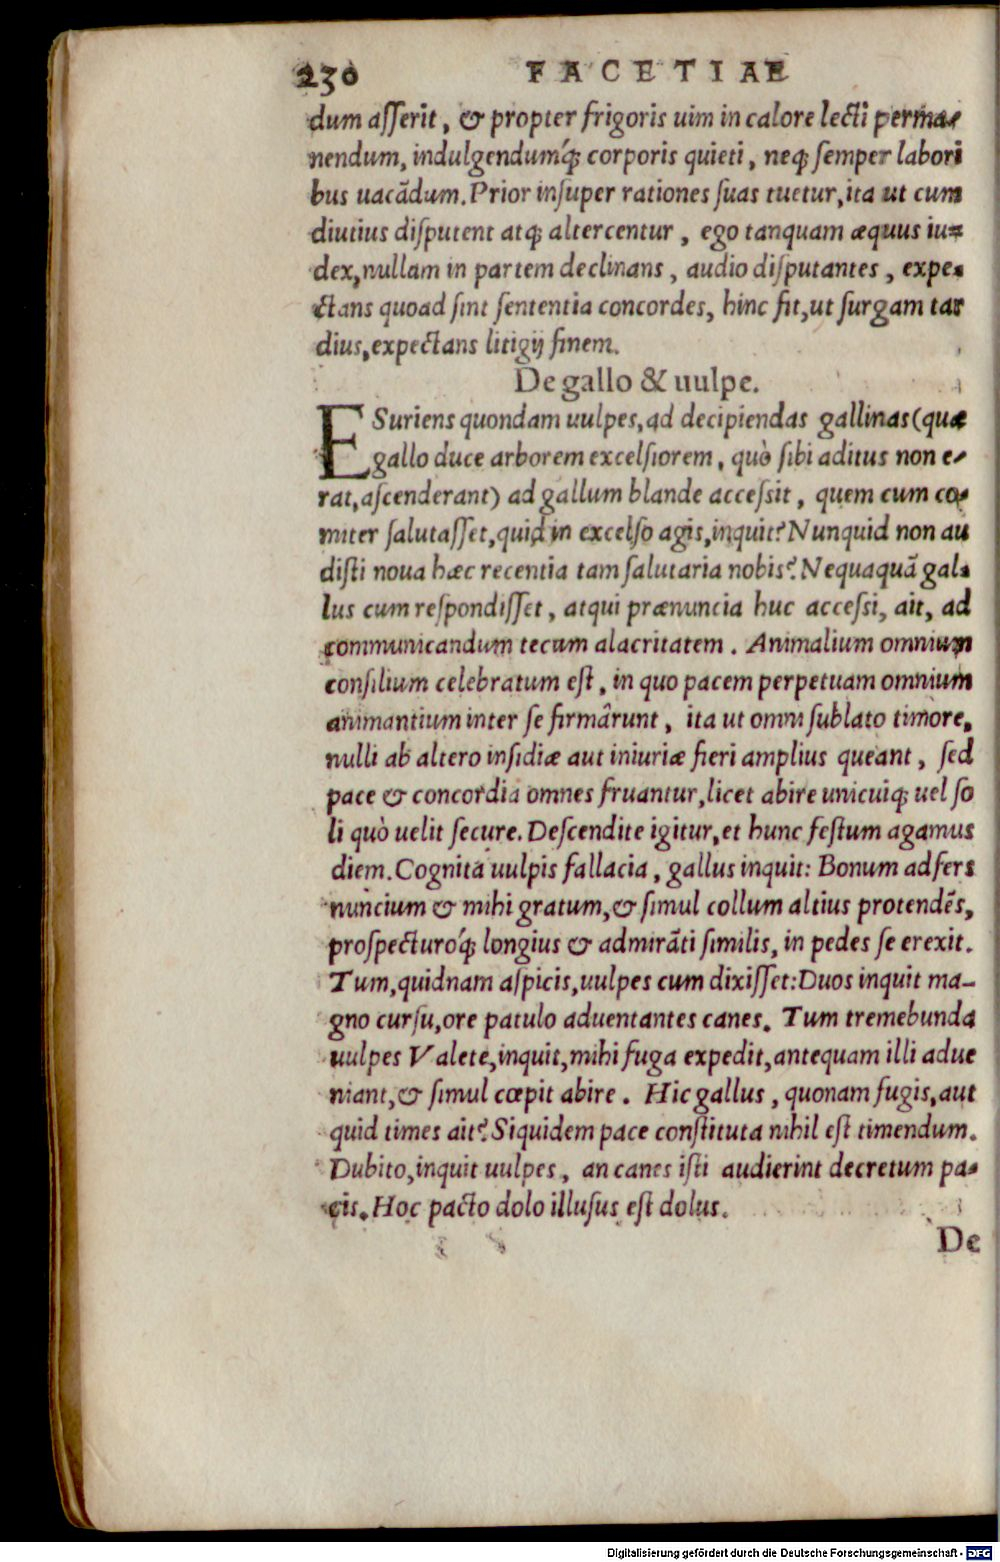 230 FACETIAE
dum aſſerit, & propter frigoris uim in calore lecti perma-
nendum, indulgendumq́; corporis quieti, neq; ſemper labori
bus uacãdum. Prior inſuper rationes ſuas tuetur, ita ut cum
diutius diſputent atq; altercentur, ego tanquam æquus iu=
dex, nullam in partem declinans, audio diſputantes, expe-
ctans quoad ſint ſententia concordes, hinc fit, ut ſurgam tar
dius, expectans litigij finem.
De gallo & uulpe.
ESuriens quondam uulpes, ad decipiendas gallinas (quæ
gallo duce arborem excelſiorem, quò ſibi aditus non e-
rat, aſcenderant) ad gallum blande acceſsit, quem cum co-
miter ſalutaſſet, quid in excelſo agis, inquit? Nunquid non au
diſti noua hæc recentia tam ſalutaria nobis? Nequaquã gal-
lus cum reſpondiſſet, atqui prænuncia huc acceſsi, ait, ad
communicandum tecum alacritatem. Animalium omnium
conſilium celebratum eſt, in quo pacem perpetuam omnium
animantium inter ſe firmârunt, ita ut omni ſublato timore,
nulli ab altero inſidiæ aut iniuriæ fieri amplius queant, ſed
pace & concordia omnes fruantur, licet abire unicuiq; uel ſo
li quò uelit ſecure. Deſcendite igitur, et hunc feſtum agamus
diem. Cognita uulpis fallacia, gallus inquit: Bonum adfers
nuncium & mihi gratum, & ſimul collum altius protendẽs,
proſpecturoq́; longius & admirãti ſimilis, in pedes ſe erexit.
Tum, quidnam aſpicis, uulpes cum dixiſſet: Duos inquit ma-
gno curſu, ore patulo aduentantes canes. Tum tremebunda
uulpes Valete, inquit, mihi fuga expedit, antequam illi adue
niant, & ſimul cœpit abire. Hic gallus, quonam fugis, aut
quid times ait? Siquidem pace conſtituta nihil eſt timendum.
Dubito, inquit uulpes, an canes iſti audierint decretum pa-
cis. Hoc pacto dolo illuſus eſt dolus.
De
Digitalisierung gefördert durch die Deutsche Forschungsgemeinschaft - DFG